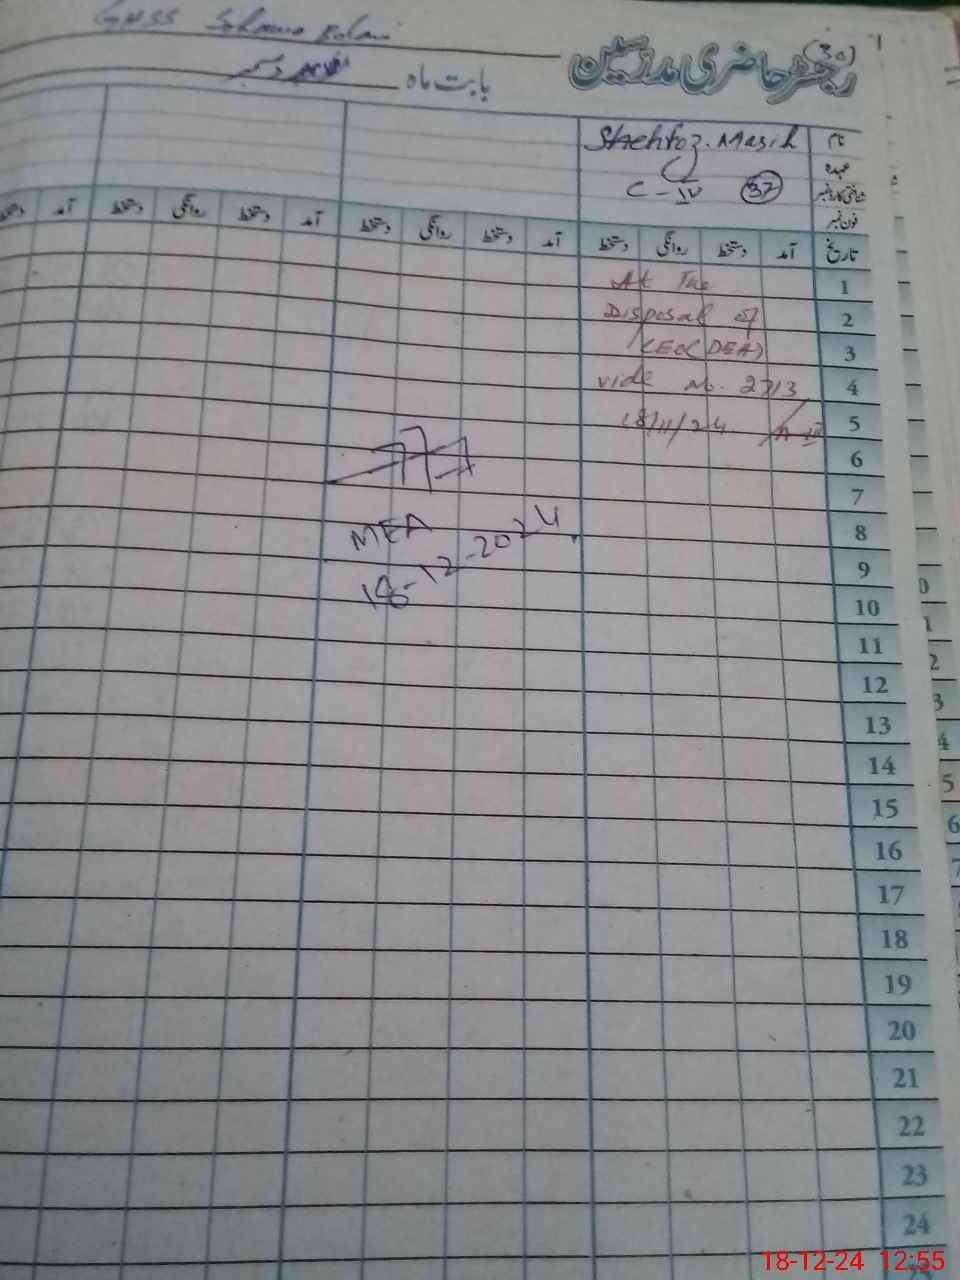 GHSS
رجسٹر حاضری مدرسین (30)
بابت ماہ دسمبر
نام Shehfoz. Masih
عہدہ
شناختی کارڈ نمبر C-IV 37
فون نمبر
تاریخ آمد دستخط روانگی دستخط آمد دستخط روانگی دستخط آمد دستخط روانگی دستخط آمد دستخط
1 At The
2 Disposal of
3 CEO(DEA)
4 vide No. 2713
5 18/11/24
6
7
8 MEA
9 18-12-2024
10
11
12
13
14
15
16
17
18
19
20
21
22
23
24
18-12-24 12:55